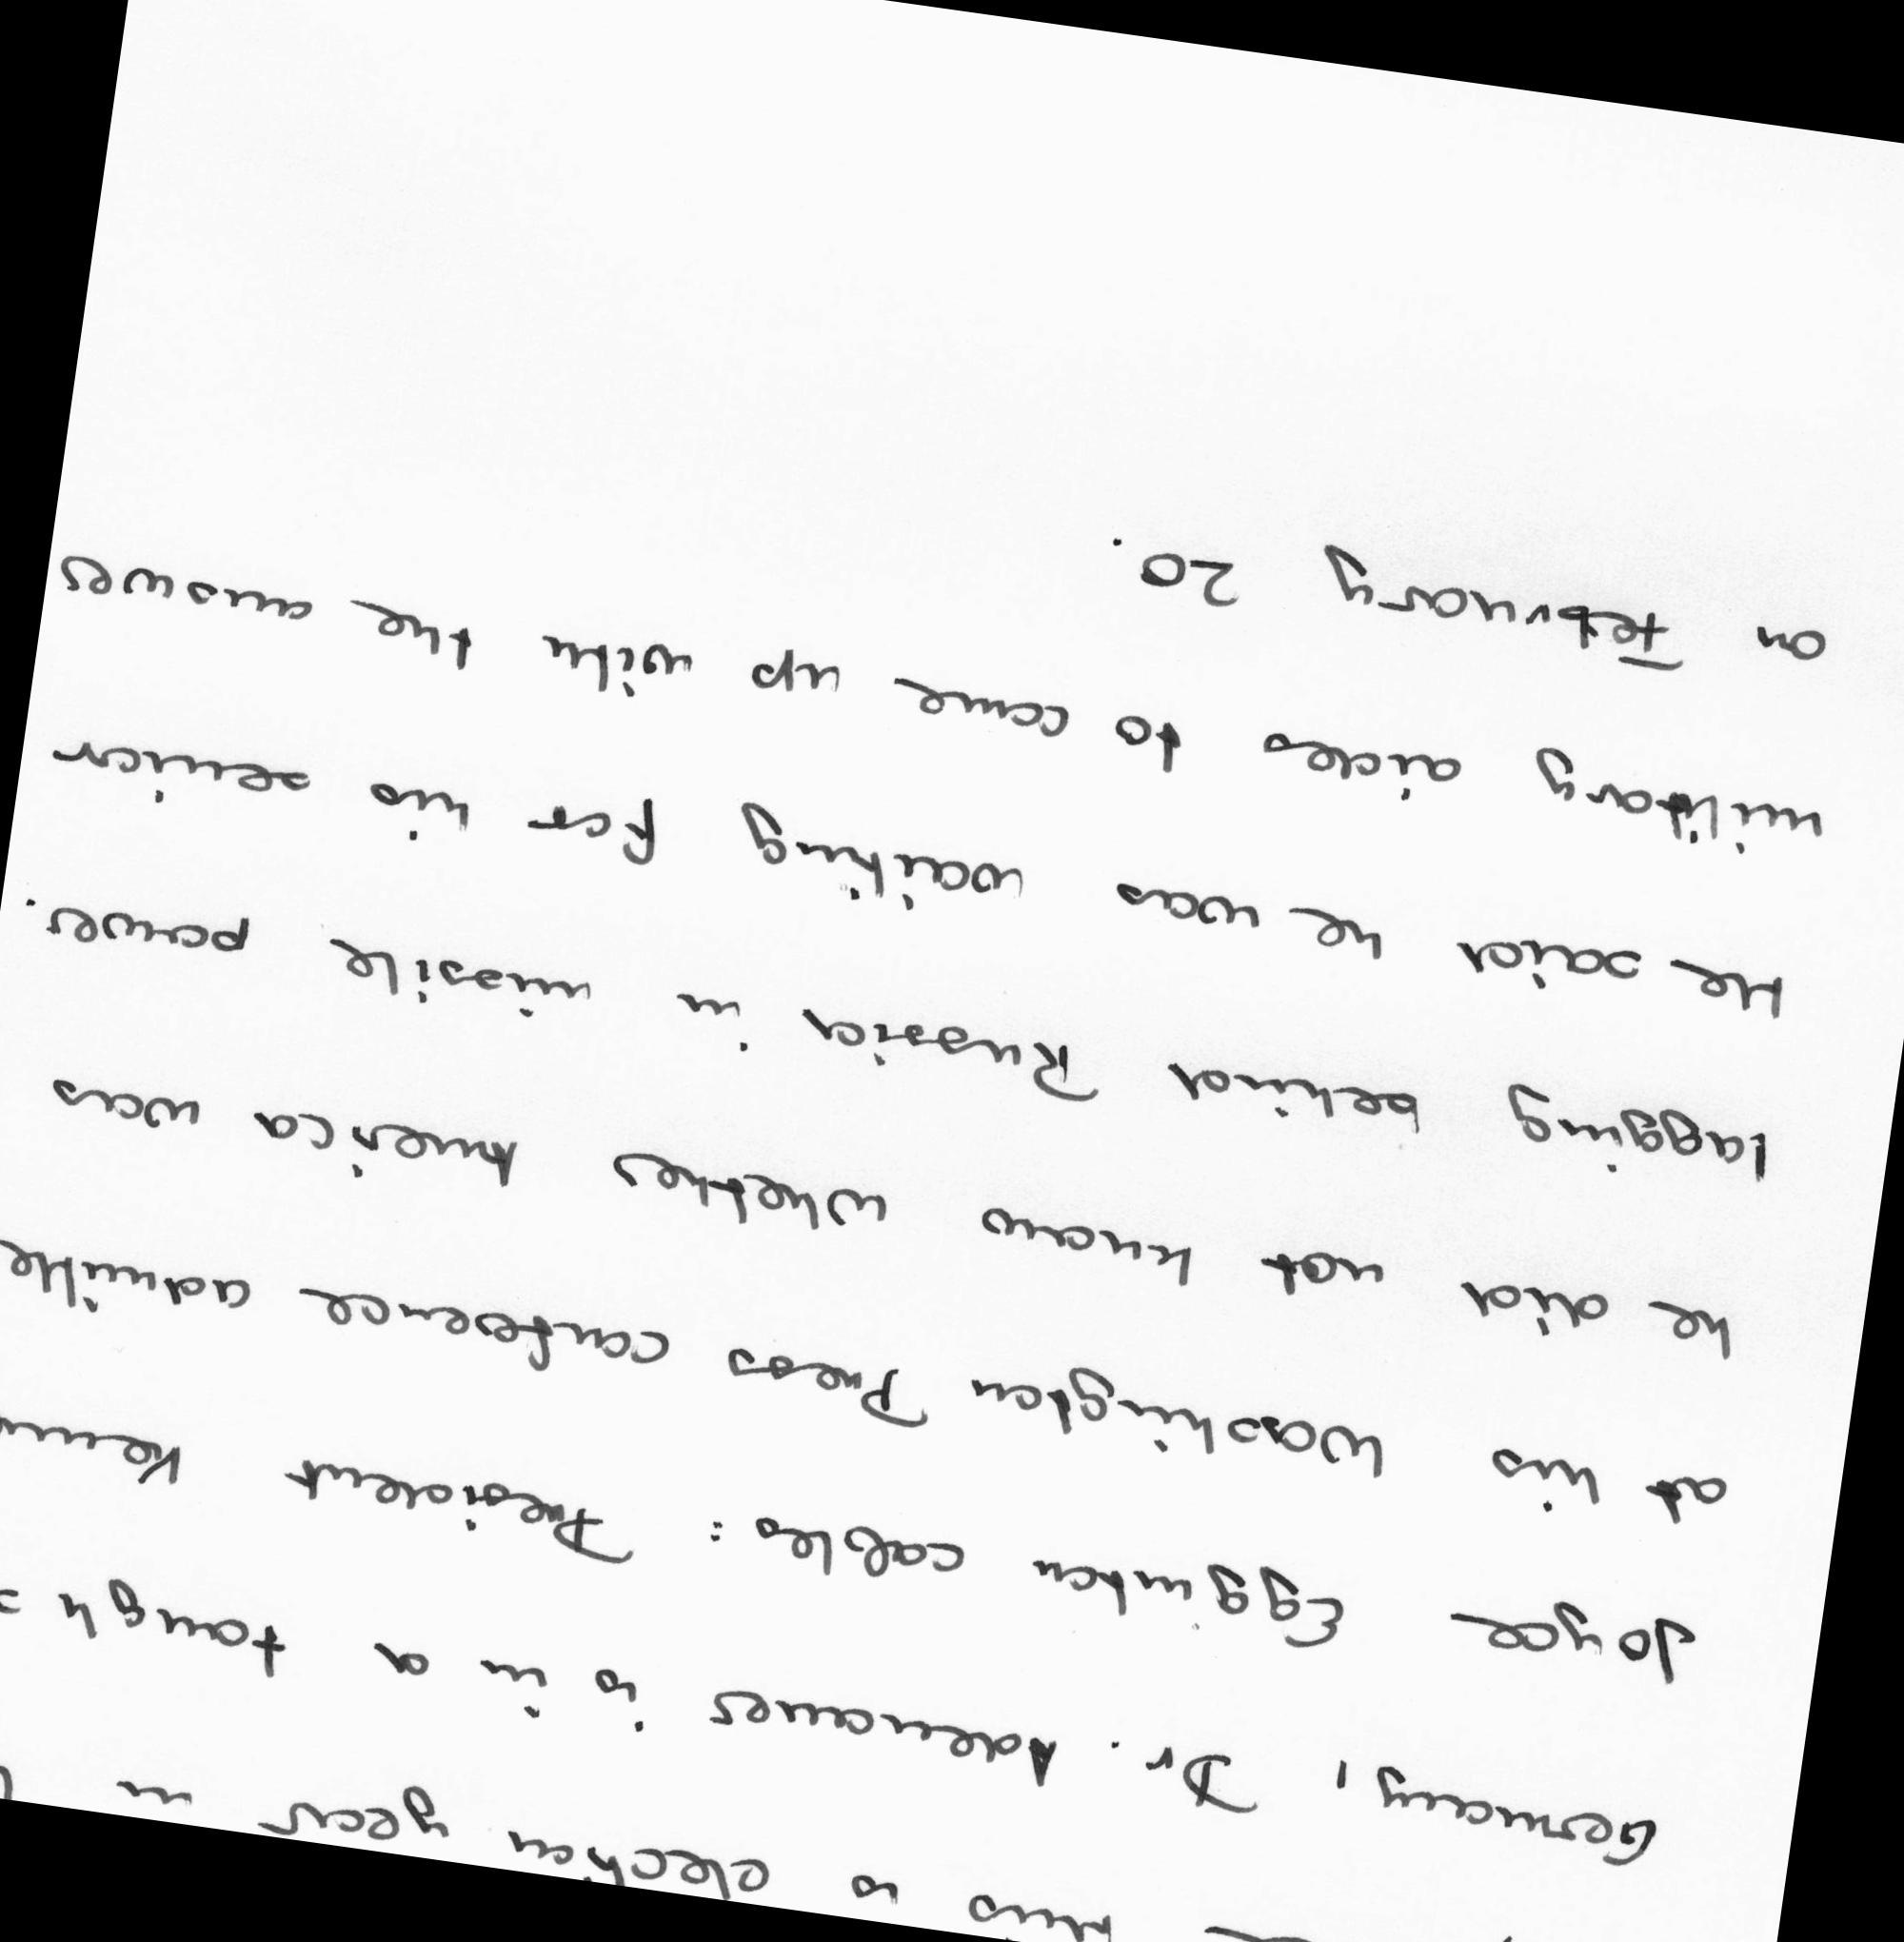 this is election year in
Germany, Dr. Adenauer is in a tough
Joyce Egginton cables: President
at his Washington Press conference admitte
he did not know whether America was
lagging behind Russia in missile power.
He said he was waiting for his senior
military aides to come up with the answer
on February 20.